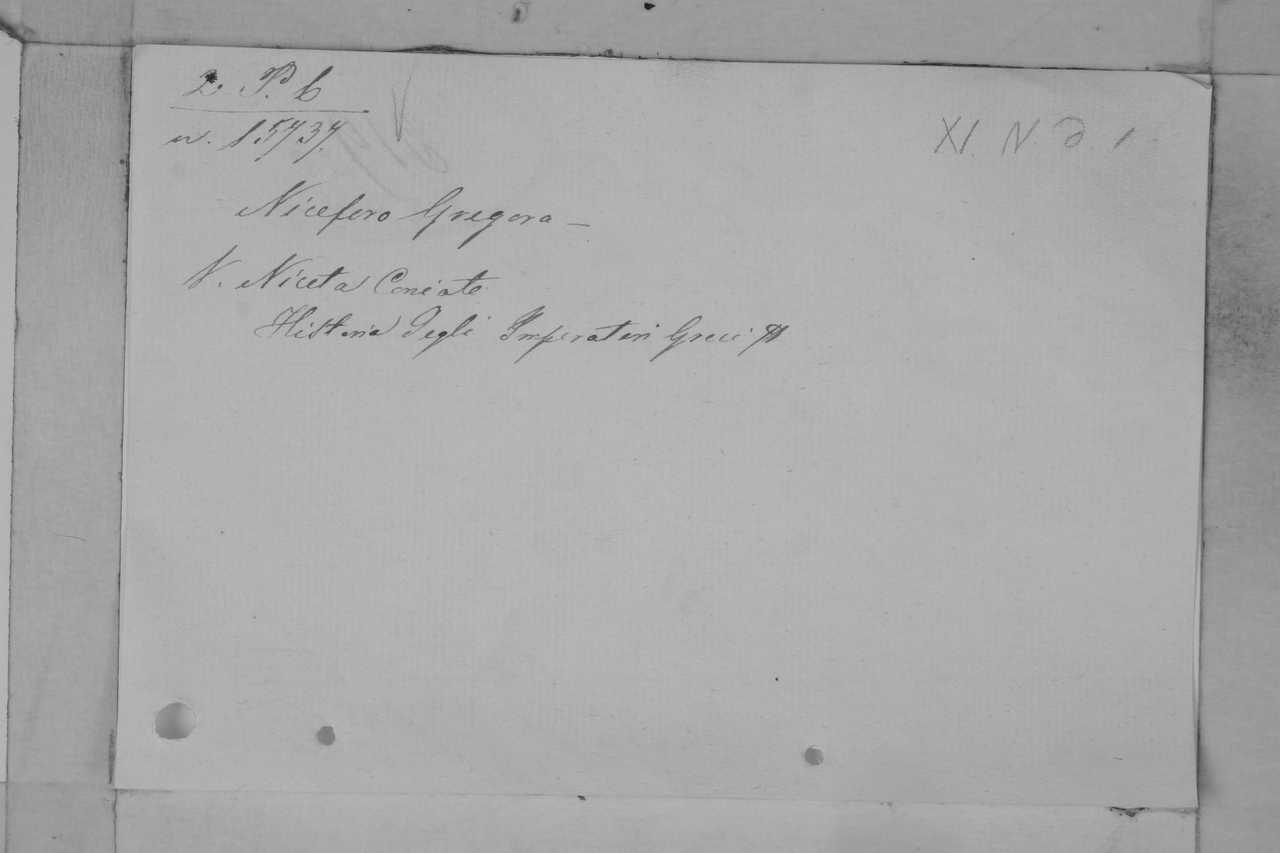 2. P. b
n. 15737.
XI. N. d. 1
Nicefero Gregora —
V. Niceta Coniate
Historia degli Imperatori Greci